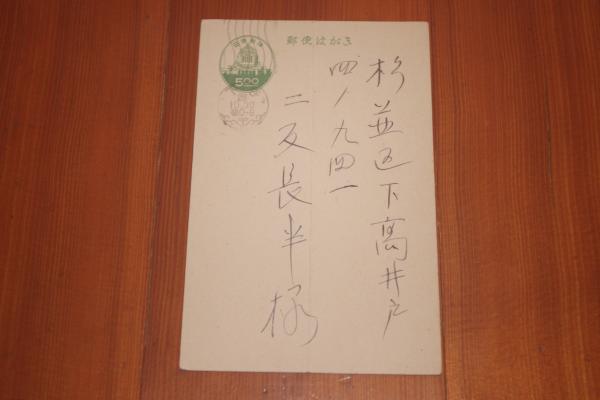 郵便はがき
杉並区下高井戸
四ノ九四一
二反長半様
5.00